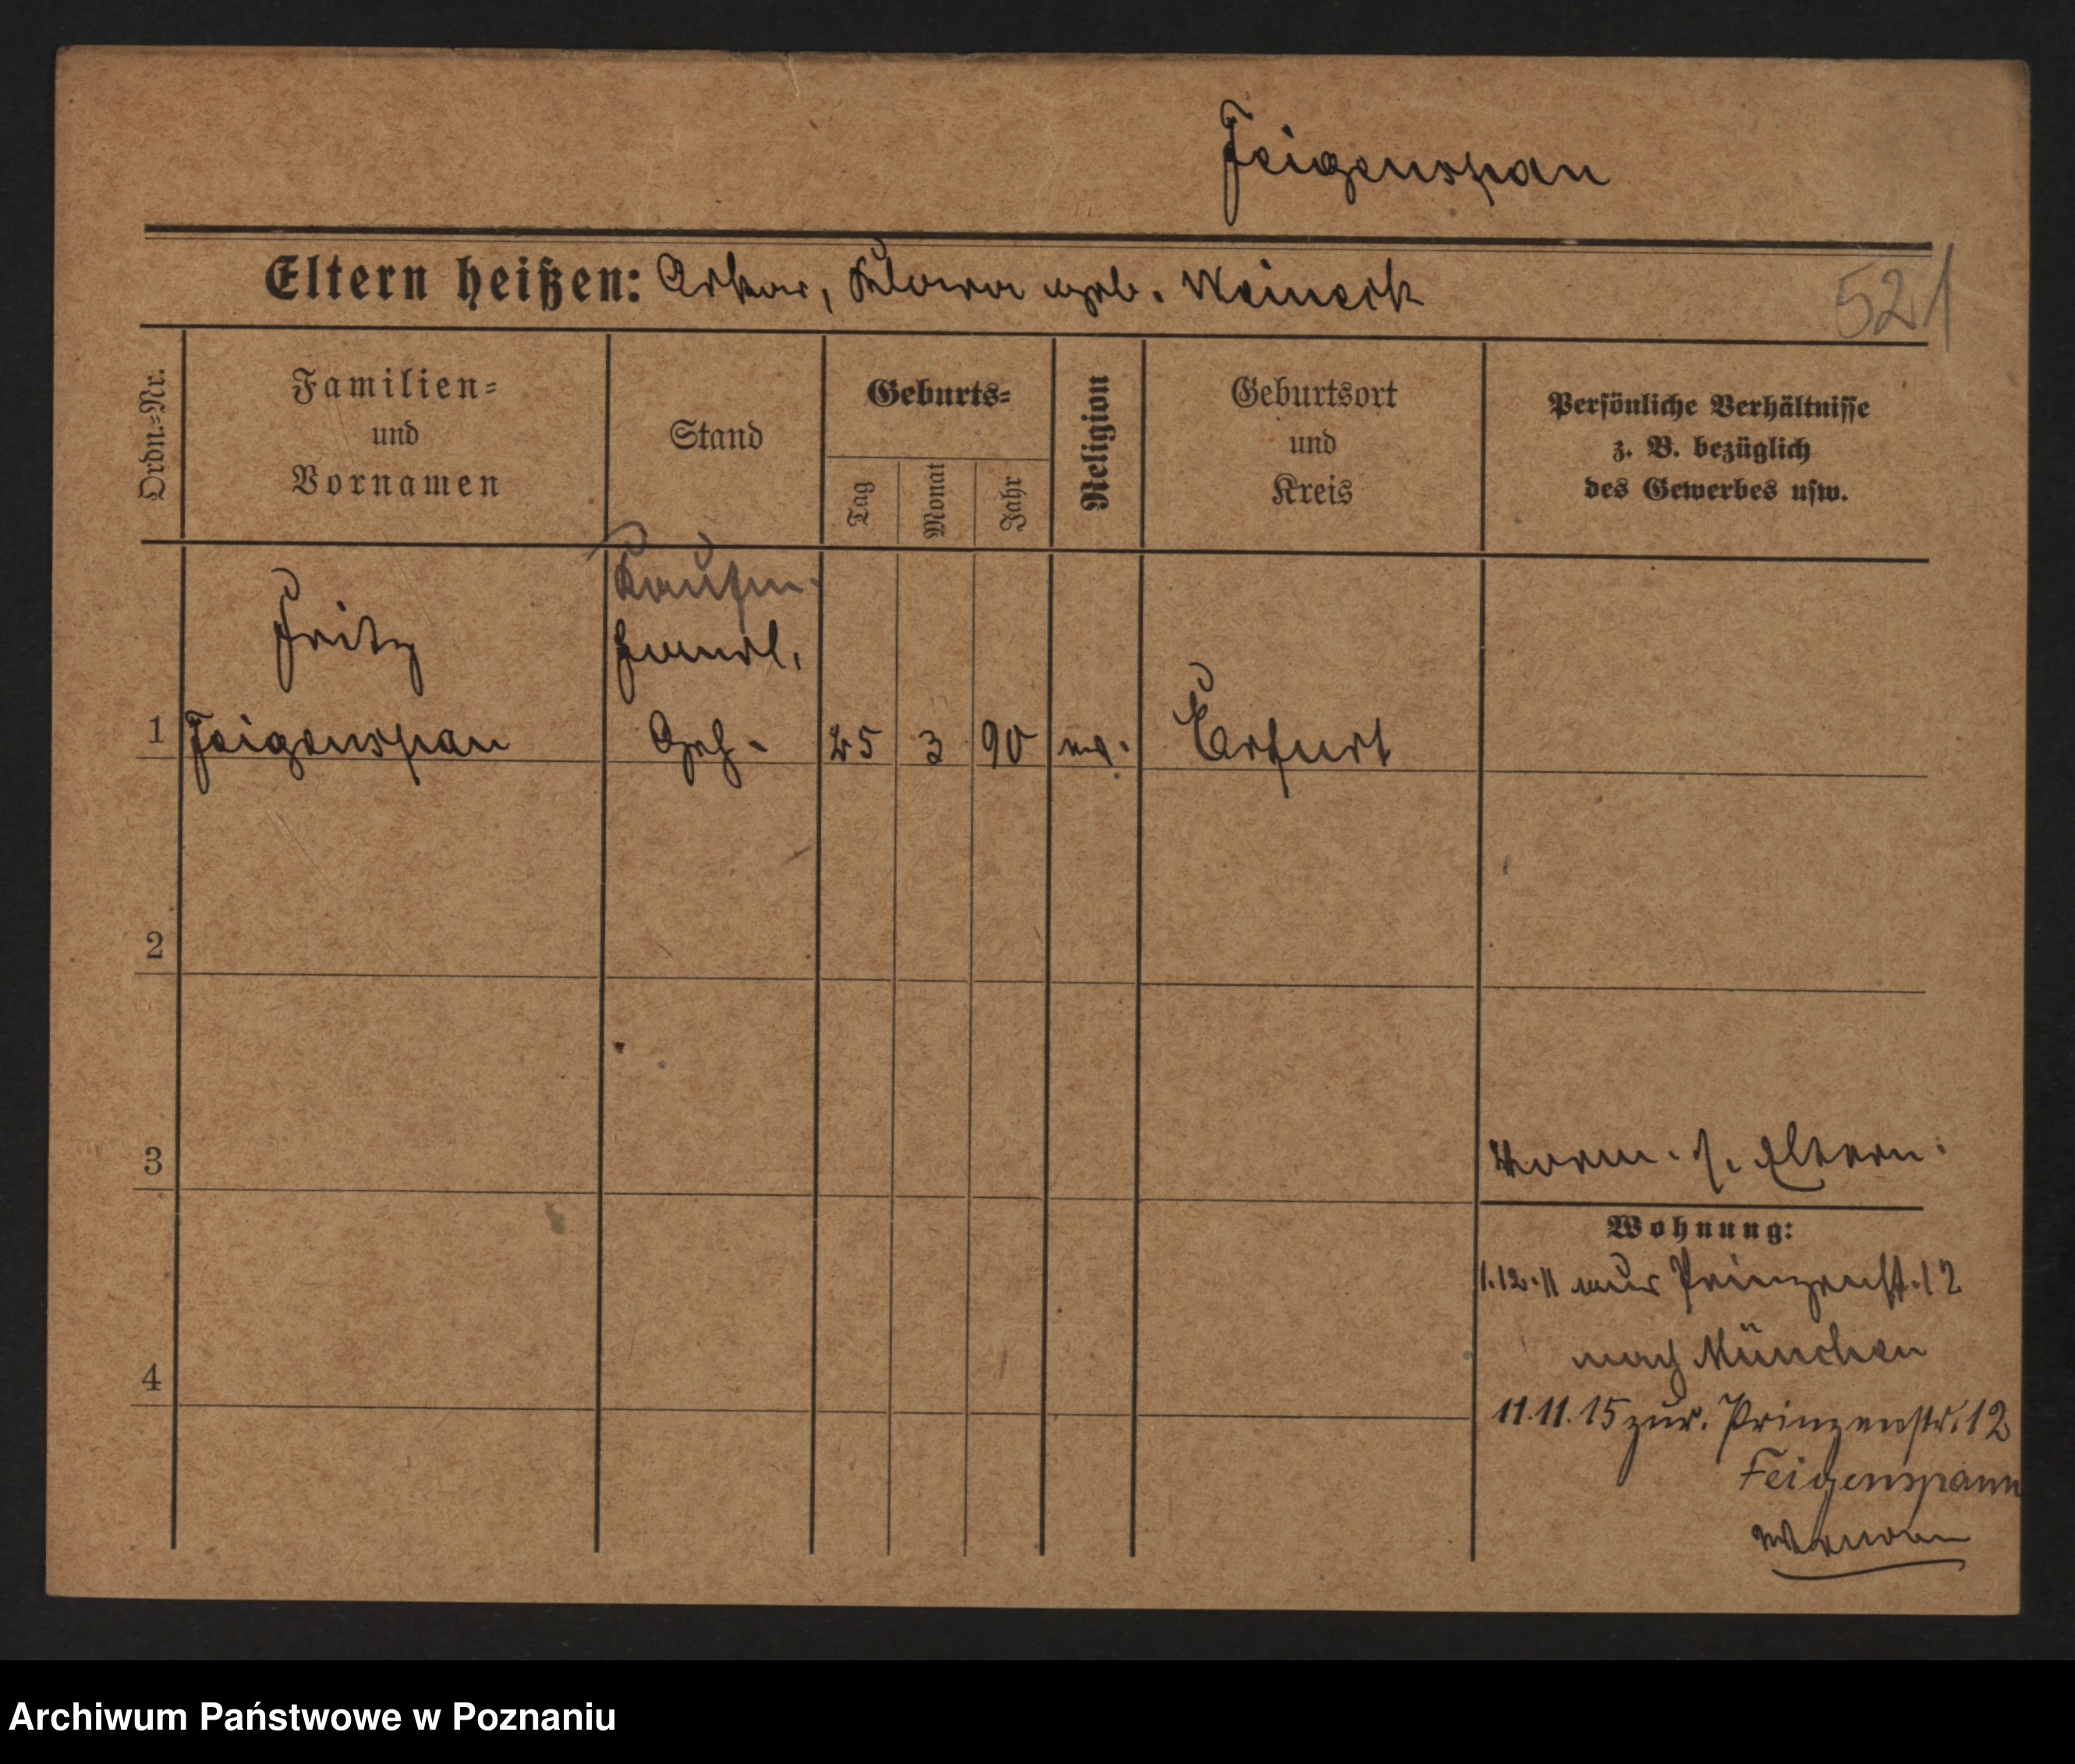 Feigenspan
Eltern heißen: Oskar, Klara geb. Weineck
521
Ordn.=Nr.
Familien=
und
Vornamen
Stand
Geburts=
Tag
Monat
Jahr
Religion
Geburtsort
und
Kreis
Persönliche Verhältnisse
z. B. bezüglich
des Gewerbes usw.
Kaufm.
Fritz
Handl.
1 Feigenspan Geh. 25 3 90 ev. Erfurt
2
3
Vorm. s. Eltern.
Wohnung:
1.12.11 aus Prinzenst. 12
nach München
4
11.11.15 zur. Prinzenstr. 12
Feigenspann